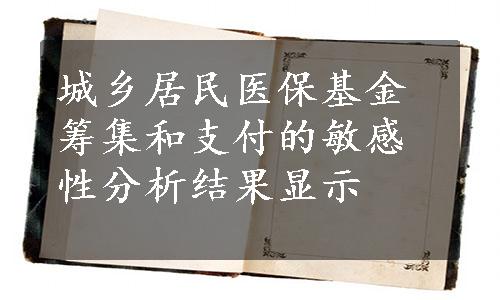 城乡居民医保基金
筹集和支付的敏感
性分析结果显示